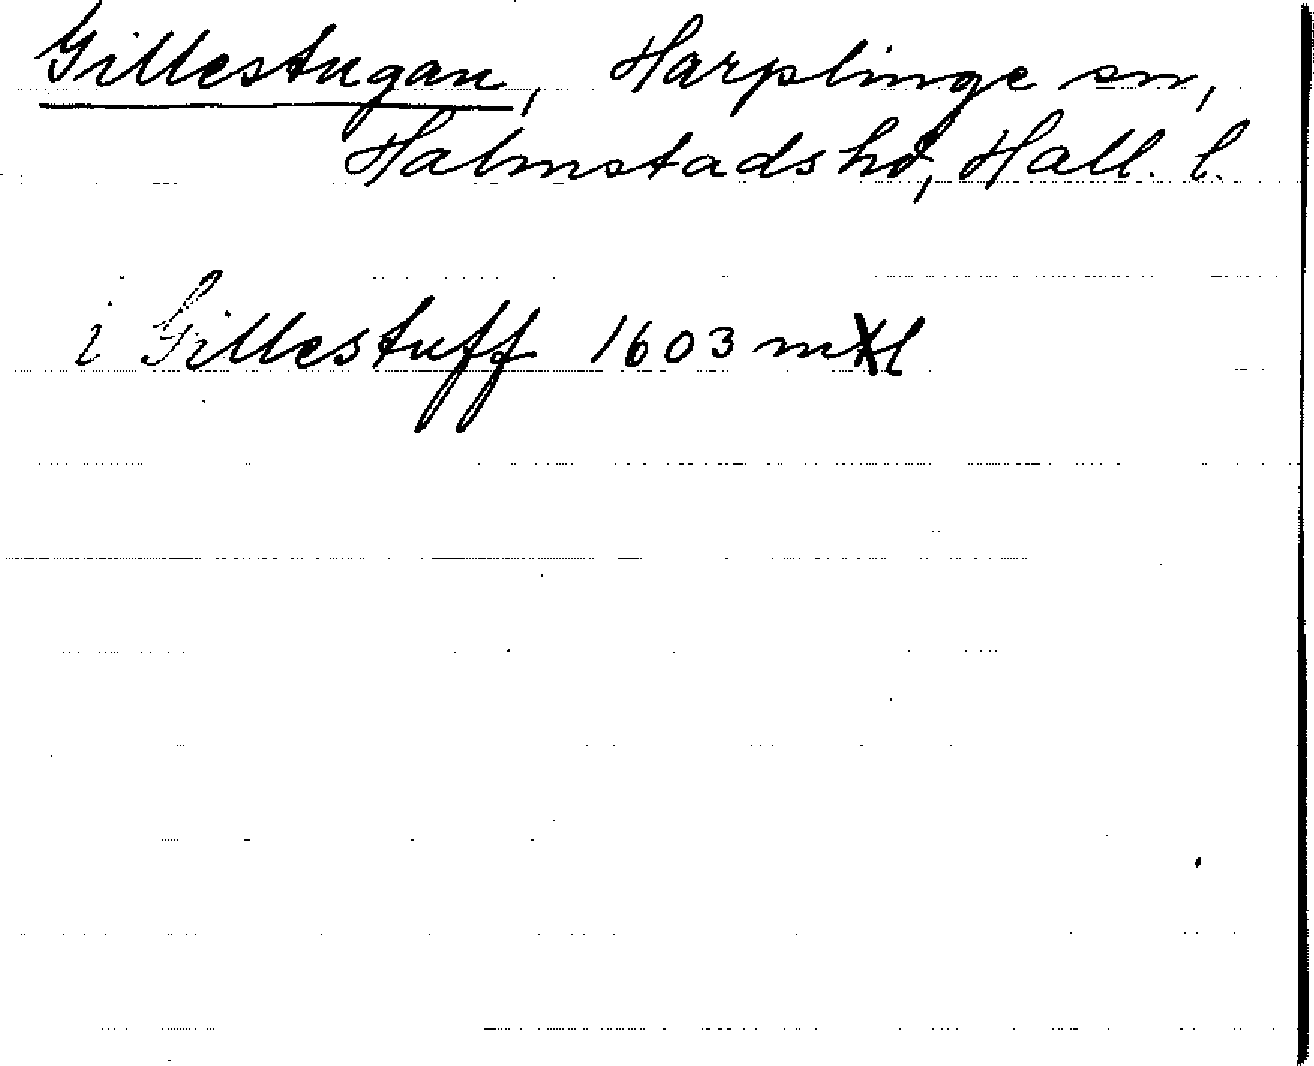 Gillestugan, Harplinge sn,
Halmstads hd, Hall. l.
i Gillestuff 1603